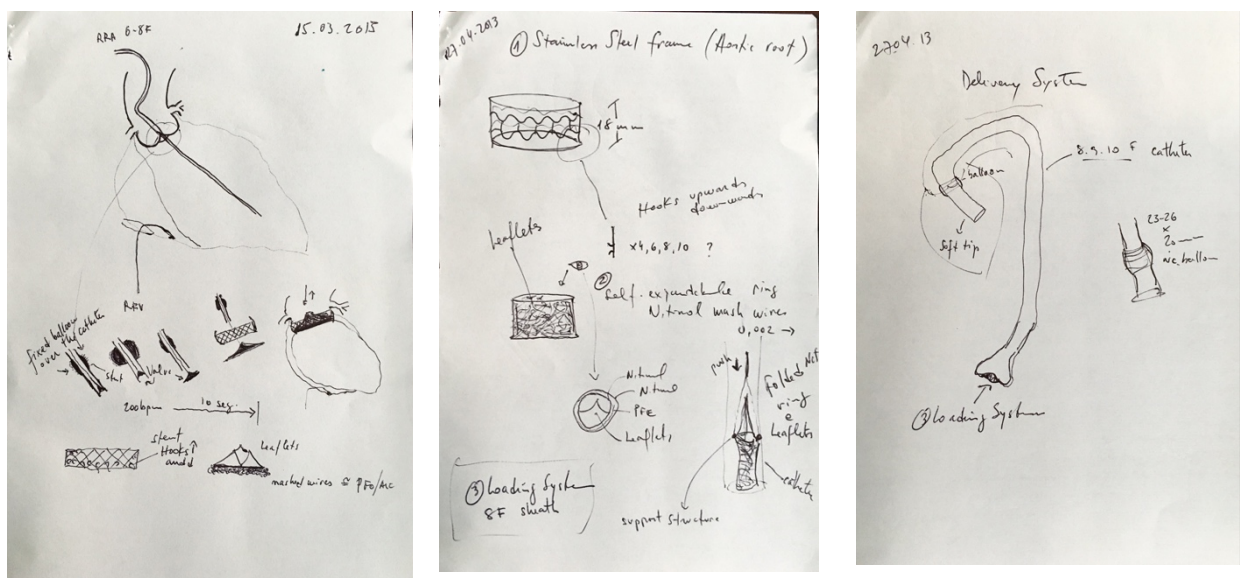 RRA 6-8F
15.03.2013
RRV
fixed balloon
over the catheter
Stent
Valve
200bpm
10 seg.
stent
Hooks
and
Leaflets
mashed wires = PFO/
27.04.2013
① Stainless Steel frame (Aortic root)
18 mm
Hooks upwards
downwards
x4,6,8,10 ?
Leaflets
②
Self-expandable ring
Nitinol mash wires
0,002
Nitinol
Nitinol
Leaflets
push
Folded Net
ring
e
Leaflets
catheter
③ Loading System
8F sheath
support structure
27.04.13
Delivery System
8.9.10 F catheter
balloon
Soft tip
23-26
x
20
balloon
③ Loading System